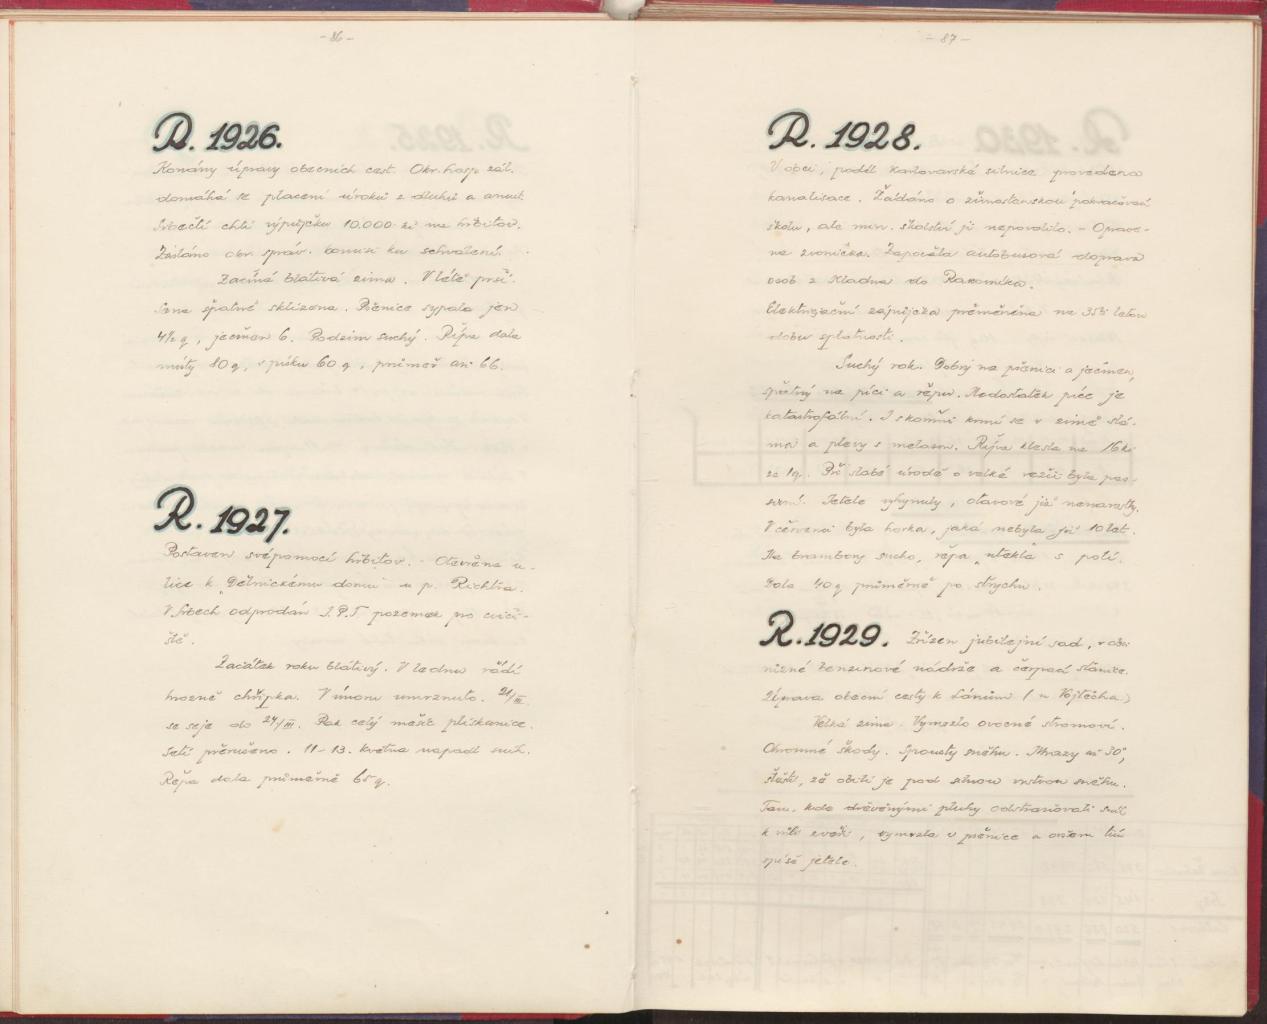 - 86 -
R. 1926.
Konány úpravy obecních cest. Okr. hosp. zál.
domáhá se placení úroků z dluhů a anuit.
Srbečtí chtí výpůjčku 10.000 kč na hřbitov.
Zasláno okr. správ. komisi ku schválení.
Začíná blátivá zima. V létě prší.
Sena špatně sklizena. Pšenice sypala jen
4½ q, ječmen 6. Podzim suchý. Řípa dala
80 q, v písku 60 q, průměr asi 66.
R. 1927.
Postaven svépomocí hřbitov. - Otevřena u-
lice k „Dělnickému domu" u p. Richtra.
V Srbech odprodán S.P.T. pozemek pro cviči-
ště.
Začátek roku blátivý. V lednu řádí
hrozně chřipka. V únoru umrznuto. 21/III.
se seje do 24/III. Pak celý měsíc plískanice.
Setí přerušeno. 11-13. května napadl sníh.
Řepa dala průměrně 65 q.
- 87 -
R. 1928.
V obci, podél Karlovarské silnice provedena
kanalisace. Žádáno o živnostenskou pokračovací
školu, ale min. školství ji nepovolilo. - Oprave-
na zvonička. Započala autobusová doprava
osob z Kladna do Rakovníka.
Elektrisační zápůjčka přeměněna na 35ti letou
dobu splatnosti.
Suchý rok. Dobrý na pšenici a ječmen,
špatný na píci a řepu. Nedostatek píce je
katastrofální. I skoření krmí se v zimě slá-
ma a plevy s melasou. Řípa klesla na 16 kč
za 1 q. Při slabé úrodě o velké režii byla pas-
sivní. Jetele vyhynuly, otavové již nenarostly.
V červenci byla horka, jaká nebyla již 10 let.
Na brambory sucho, řepa „utekla" s polí.
Dala 40 q průměrně po strychu.
R. 1929. Zřízen jubilejní sad,
benzinové nádrže a čerpací stanice.
Úprava obecní cesty k Lánům (u Vojtěcha)
Velká zima. Vymrzlo ovocné stromoví.
Ohromné škody. Spousty sněhu. Mrazy až 30°,
štěstí, že obilí je pod silnou vrstvou sněhu.
Tam, kde dřevěnými pluhy odstraňovali sníh
k vůli zvěři, vymrzla i pšenice a ovšem tím
spíše jetele.